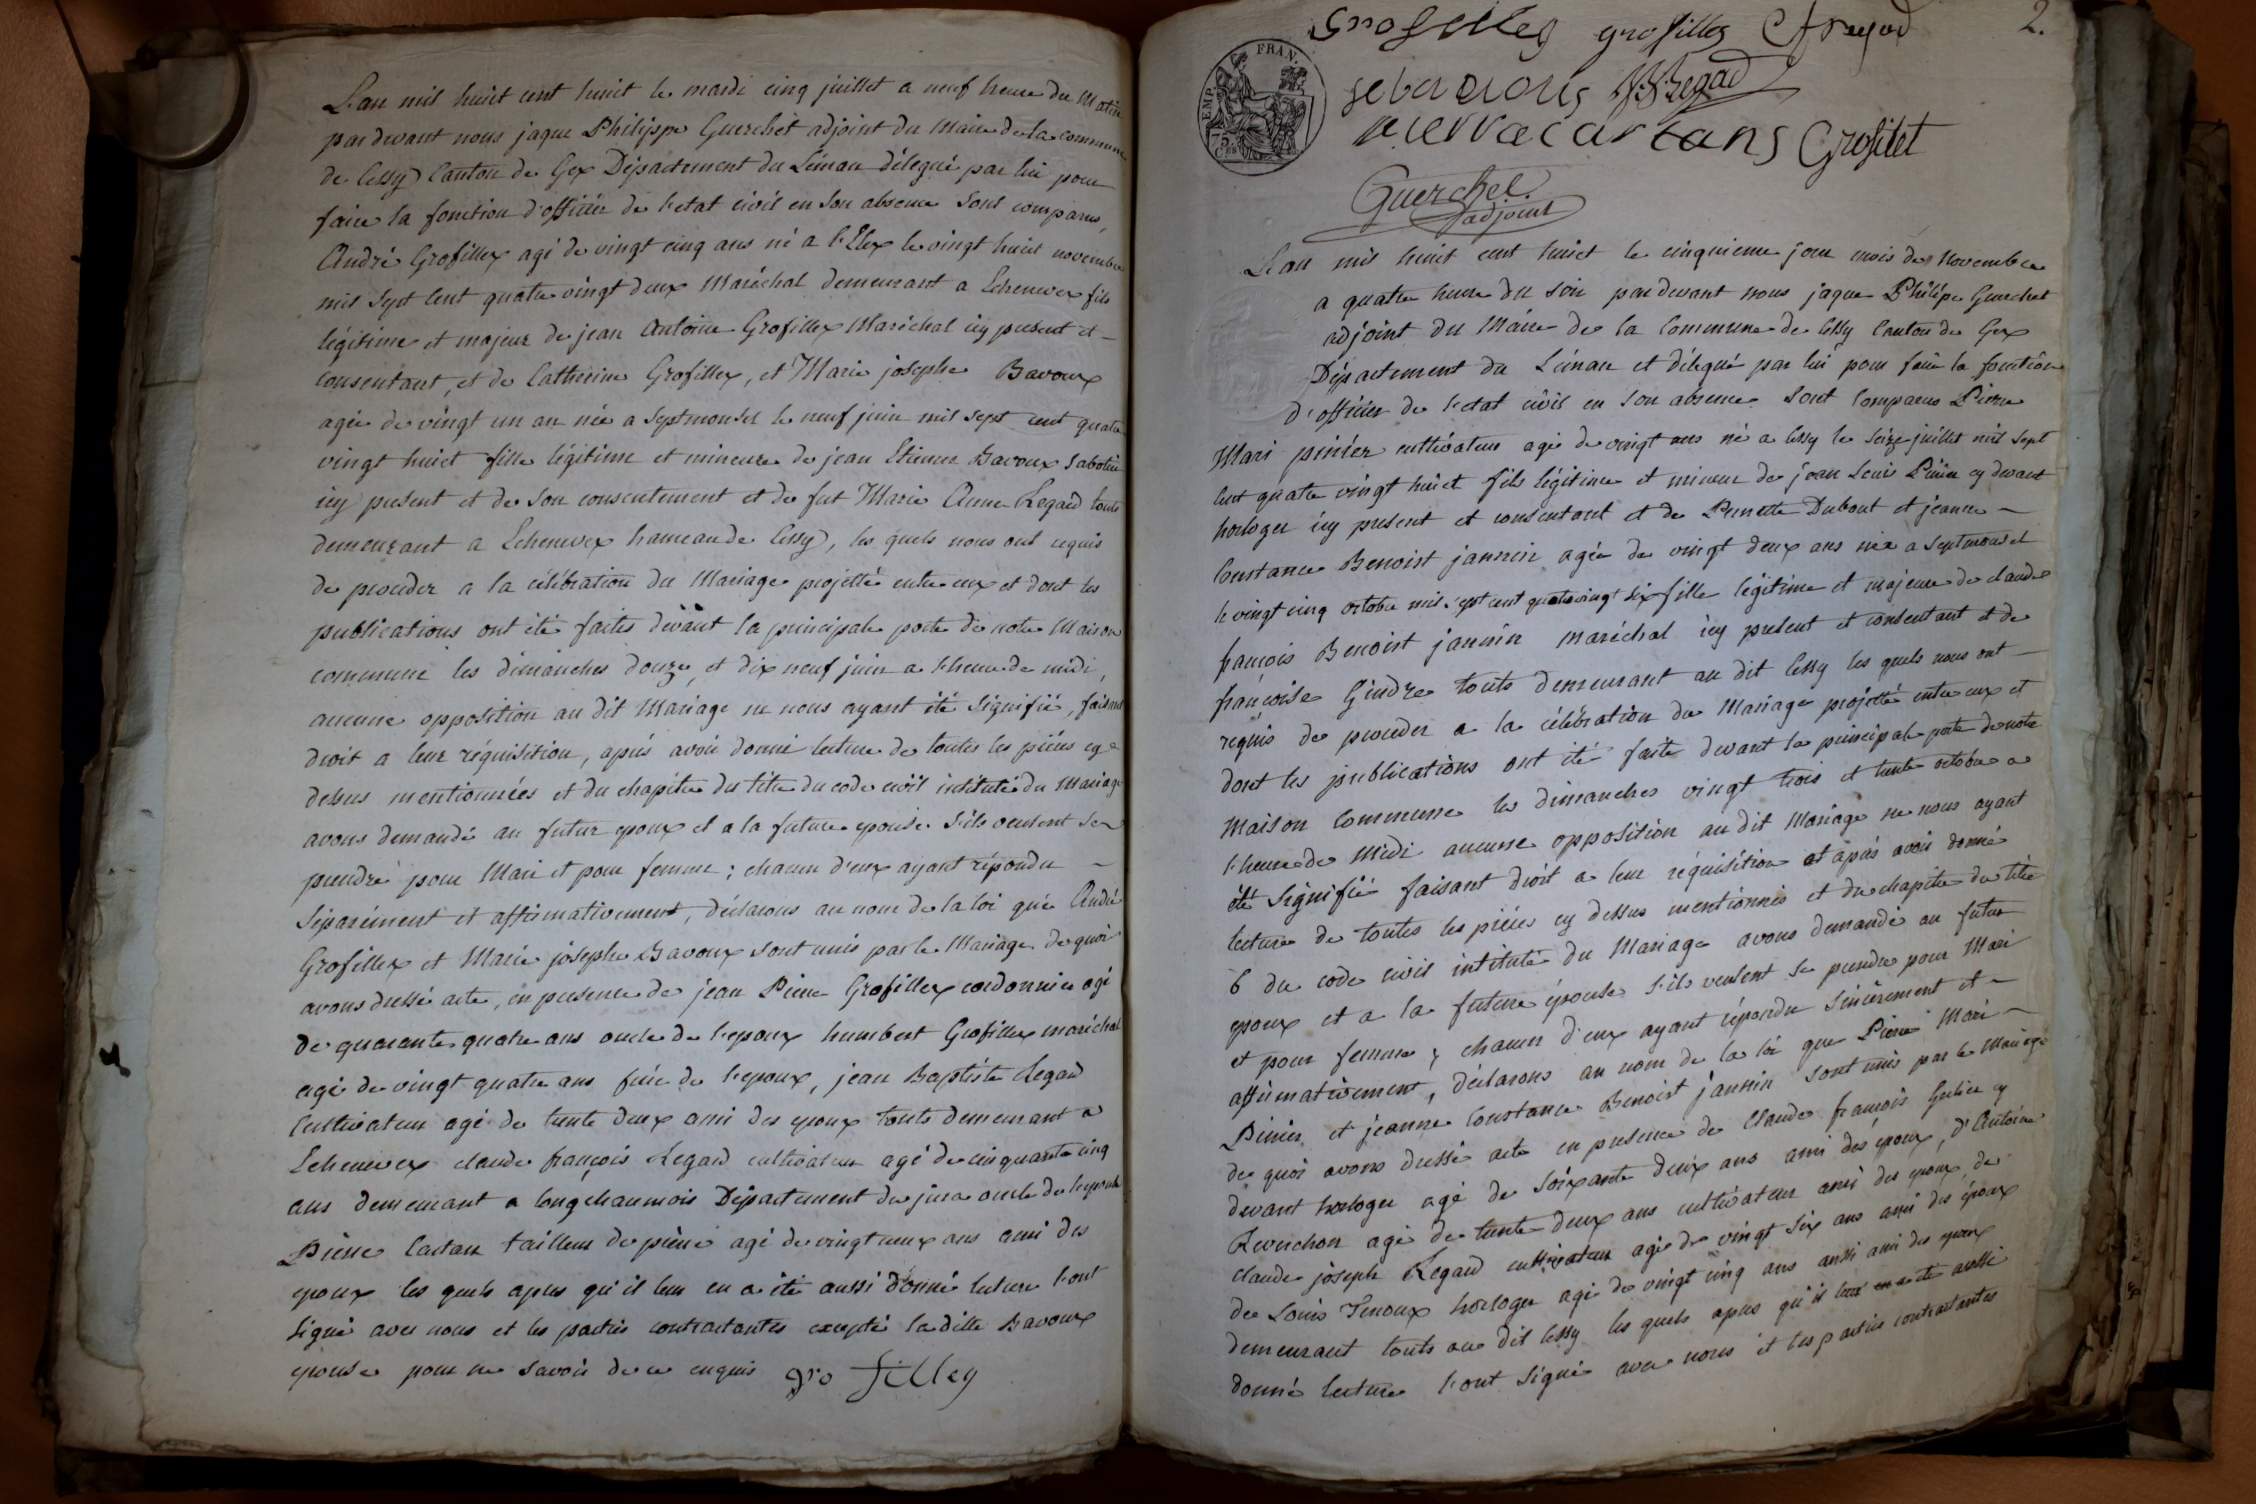 L'an mil huict cent huict le mardi cinq juillet a neuf heure du Matin
par devant nous jaque Philippe Guerchet adjoint du Maire de la commune
de Cessy Canton de Gex Département du Léman délégué par lui pour
faire la fonction d'officier de l'etat civil en son absence sont comparus,
André Grosfillex agé de vingt cinq ans né a l'Elex le vingt huict novembre
mil sept cent quatre vingt deux Maréchal demeurant a Echenevex fils
légitime et majeur de jean Antoine Grosfillex Maréchal icy present et
consentant, et de Catherine Grosfillex, et Marie josephe Bavoux
agée de vingt un an née a Septmonsel le neuf juin mil sept cent quatre
vingt huict fille légitime et mineure de jean Etienne Bavoux Sabotier
icy present et de son consentement et de fut Marie Anne Regard touts
demeurant a Echenevex hameau de Cessy, les quels nous ont requis
de proceder a la célébration du Mariage projetté entre eux et dont les
publications ont été faites devant la principale porte de notre Maison
commune les dimanches douze, et dix neuf juin a l'heure de midi,
aucune opposition au dit Mariage ne nous ayant été signifié, faisant
droit a leur réquisition, après avoir donné lecture de toutes les pièces cy
dessus mentionnées et du chapitre du titre du code civil intitulé du Mariage
avons demandé au futur epoux et a la future epouse s'ils veulent se
prendre pour Mari et pour femme ; chacun d'eux ayant répondu
séparément et affirmativement, déclarons au nom de la loi que André
Grosfillex et Marie josephe Bavoux sont unis par le Mariage de quoi
avons dressé acte, en presence de jean Pierre Grosfillex cordonnier agé
de quarante quatre ans oncle de l'epoux humbert Grosfillex maréchal
agé de vingt quatre ans frère de l'epoux, jean Baptiste Regard
Cultivateur agé de trente deux ami des epoux touts demeurant a
Echenevex claude françois Regard cultivateur agé de cinquante cinq
ans demeurant a longchaumois Département du jura oncle de l'epouse
Pierre Cartan tailleur de pierre agé de vingt neux ans ami des
epoux les quels apres qu'il leur en a été aussi donné lecture l'ont
signé avec nous et les parties contractantes excepté la dite Bavoux
epouse pour ne savoir de ce enquis gro filley
2.
Grosfilley grosfillex
EMP. FRAN.
75
JB Regad
pierre cartans Grosfilet
Guerchet
adjoint
L'an mil huict cent huict le cinquieme jour mois de Novembre
a quatre heure du soir par devant nous jaque Philipe Guerchet
adjoint du Maire de la Commune de Cessy Canton de Gex
Département du Léman et délégué par lui pour faire la fonction
d'officier de l'etat civil en son absence sont Comparus Pierre
Mari pinier cultivateur agé de vingt ans né a Cessy le seize juillet mil sept
cent quatre vingt huict fils légitime et mineur de jean Louis Pinier cy devant
horloger icy present et consentant et de Pernette Dubout et jeanne
Constance Benoist jannin agée de vingt deux ans née a Septmonsel
le vingt cinq octobre mil sept cent quatre vingt six fille légitime et majeure de claude
françois Benoist jannin maréchal icy present et consentant et de
françoise Gindre touts demeurant au dit Cessy les quels nous ont
requis de proceder a la célébration du Mariage projetté entre eux et
dont les publications ont été faite devant la principale porte de notre
Maison Commune les dimanches vingt trois et trente octobre a
l'heure de Midi aucune opposition au dit Mariage ne nous ayant
été Signifié faisant droit a leur réquisition et après avoir donné
lecture de toutes les pièces cy dessus mentionnés et du chapitre du titre
6 du code civil intitulé du Mariage avons demandé au futur
epoux et a la future épouse s'ils veulent se prendre pour Mari
et pour femme ; chacun d'eux ayant répondu sincèrement et
affirmativement, déclarons au nom de la loi que Pierre Mari
Pinier et jeanne Constance Benoist jannin sont unis par le Mariage
de quoi avons dressé acte en presence de Claude françois cy
devant horloger agé de soixante deux ans ami des époux, d'Antoine
Reverchon agé de trente deux ans cultivateur ami des epoux de
claude joseph Regard cultivateur agé de vingt six ans ami des époux
de Louis horloger agé de vingt cinq ans aussi ami des epoux
demeurant touts au dit Cessy les quels apres qu'il leur en a été aussi
donné lecture l'ont signé avec nous et les parties contractantes